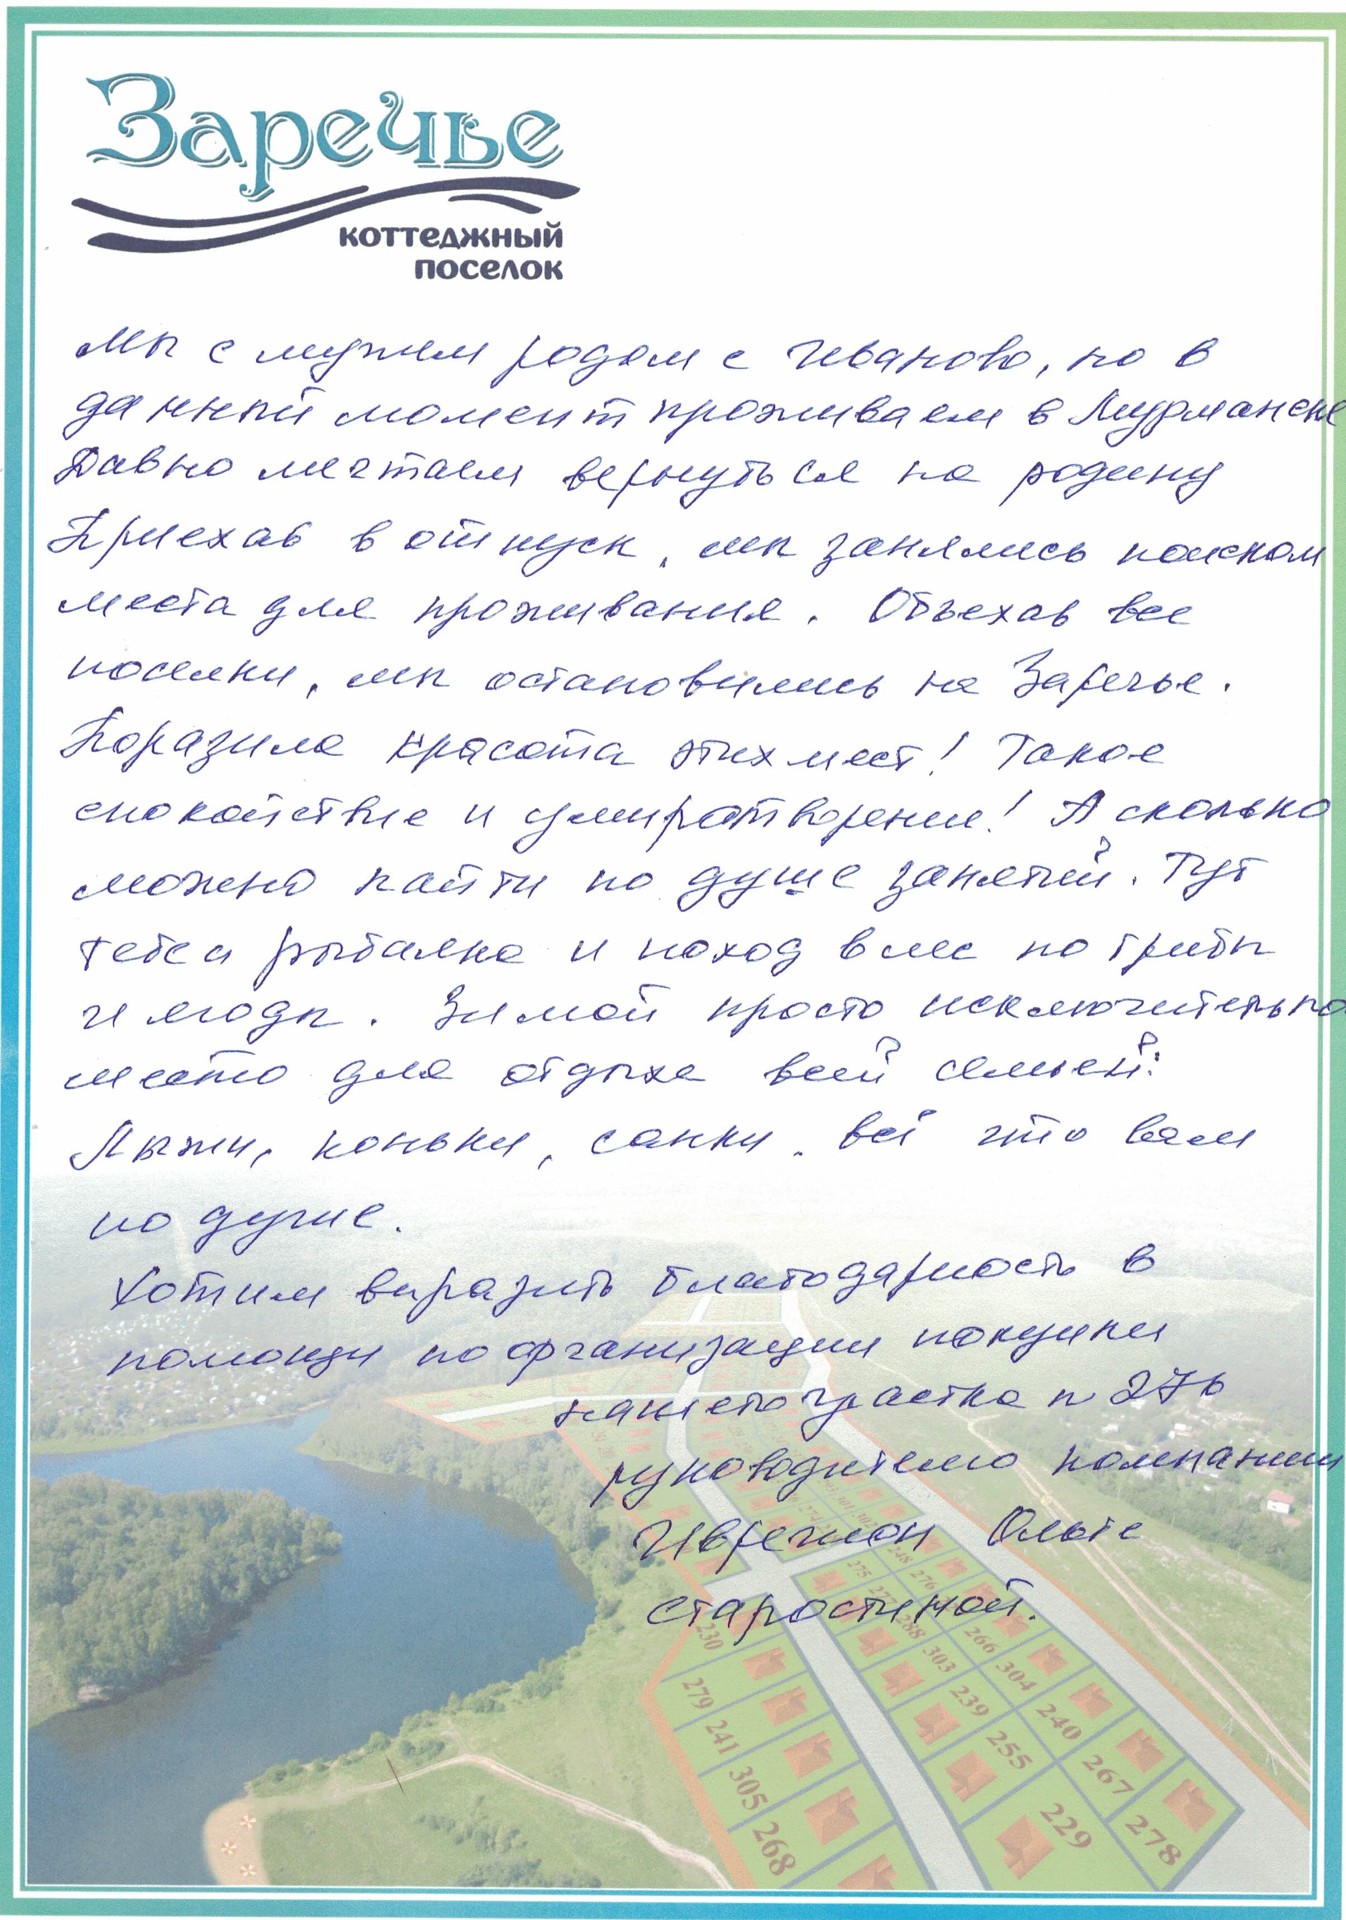 Заречье
коттеджный
поселок
Мы с мужем родом с Иваново, но в
данный момент проживаем в Мурманске
Давно мечтаем вернуться на родину
Приехав в отпуск, мы занялись поиском
места для проживания. Объехав все
поселки, мы остановились на Заречье.
Поразила красота этих мест! Такое
спокойствие и умиротворение! А сколько
можно найти по душе занятий. Тут
тебе и рыбалка и поход в лес по грибы
и ягоды. Зимой просто исключительно
место для отдыха всей семьей:
Лыжи, коньки, санки, всё что вам
по душе.
Хотим выразить благодарность в
помощи по организации покупки
нашего участка п 276
руководителю компании
Ольге
Старостиной.
230
279
241
305
268
275
288
303
239
255
229
248
276
266
304
240
267
278